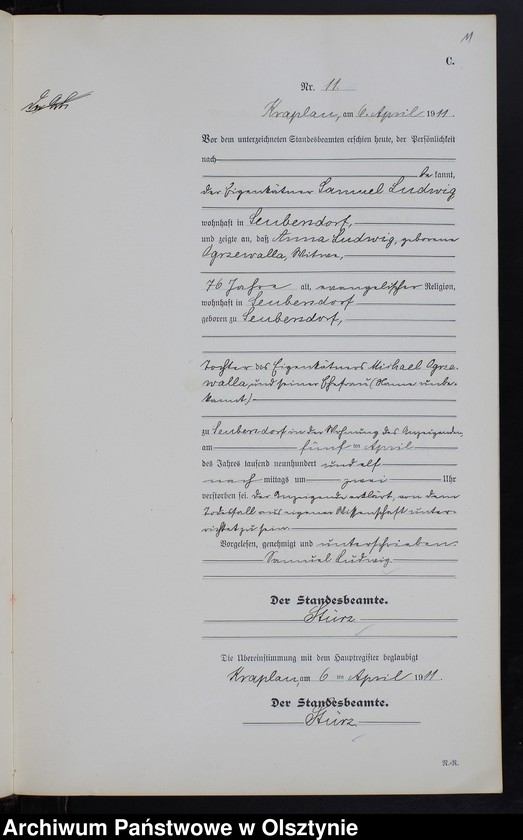 11
C.
Nr. 11.
Kraplau, am 6. April 1911.
Vor dem unterzeichneten Standesbeamten erschien heute, der Persönlichkeit
nach
be kannt,
der Eigenkätner Samuel Ludwig
wohnhaft in Seubersdorf,
und zeigte an, daß Anna Ludwig, geborene
Ogrzewalla, Witwe,
76 Jahre alt, evangelischer Religion,
wohnhaft in Seubersdorf
geboren zu Seubersdorf,
Tochter des Eigenkätners Michael Ogrze-
walla, und seiner Ehefrau (Name unbe-
kannt)
zu Seubersdorf in der Wohnung des Anzeigenden,
am fünf ten April
des Jahres tausend neunhundert und elf
nach mittags um zwei Uhr
verstorben sei. Der Anzeigende erklärt, von dem
Todesfall aus eigener Wissenschaft unter-
richtet zu sein.
Vorgelesen, genehmigt und unterschrieben.
Samuel Ludwig
Der Standesbeamte.
Stürz
Die Übereinstimmung mit dem Hauptregister beglaubigt
Kraplau, am 6 ten April 1911.
Der Standesbeamte.
Stürz
R.-R.
Archiwum Państwowe w Olsztynie